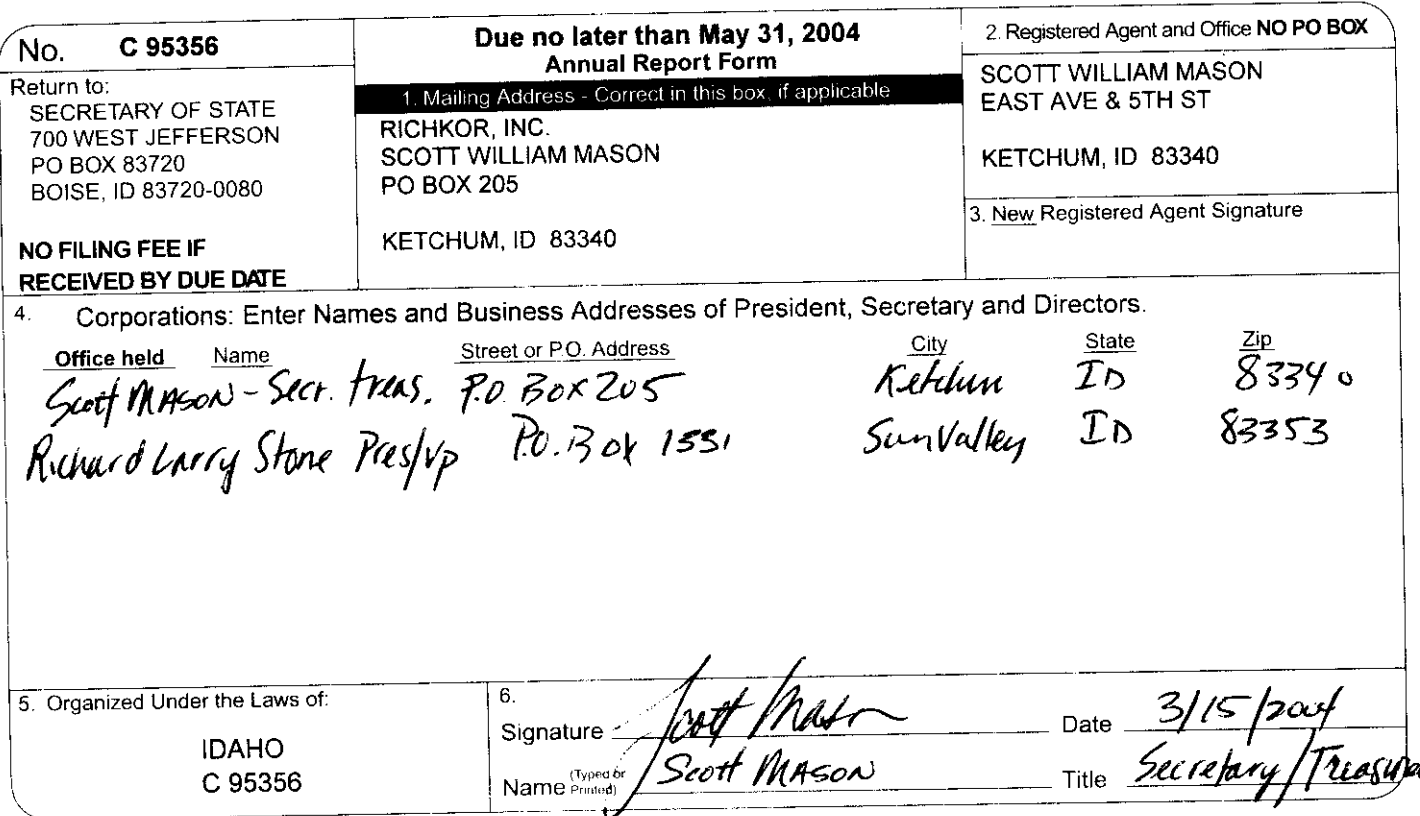 No. C 95356
Return to:
SECRETARY OF STATE
700 WEST JEFFERSON
PO BOX 83720
BOISE, ID 83720-0080
NO FILING FEE IF
RECEIVED BY DUE DATE
Due no later than May 31, 2004
Annual Report Form
1. Mailing Address - Correct in this box, if applicable
RICHKOR, INC.
SCOTT WILLIAM MASON
PO BOX 205
KETCHUM, ID 83340
2. Registered Agent and Office NO PO BOX
SCOTT WILLIAM MASON
EAST AVE & 5TH ST
KETCHUM, ID 83340
3. New Registered Agent Signature
4. Corporations: Enter Names and Business Addresses of President, Secretary and Directors.
Office held Name Street or P.O. Address City State Zip
Scott MASON - Secr. treas. P.O. Box 205 Ketchum ID 83340
Richard Larry Stone Pres/vp P.O. Box 1551 Sun Valley ID 83353
5. Organized Under the Laws of:
IDAHO
C 95356
6.
Signature Scott Mason Date 3/15/2004
Name (Typed or Printed) Scott MASON Title Secretary/Treasurer